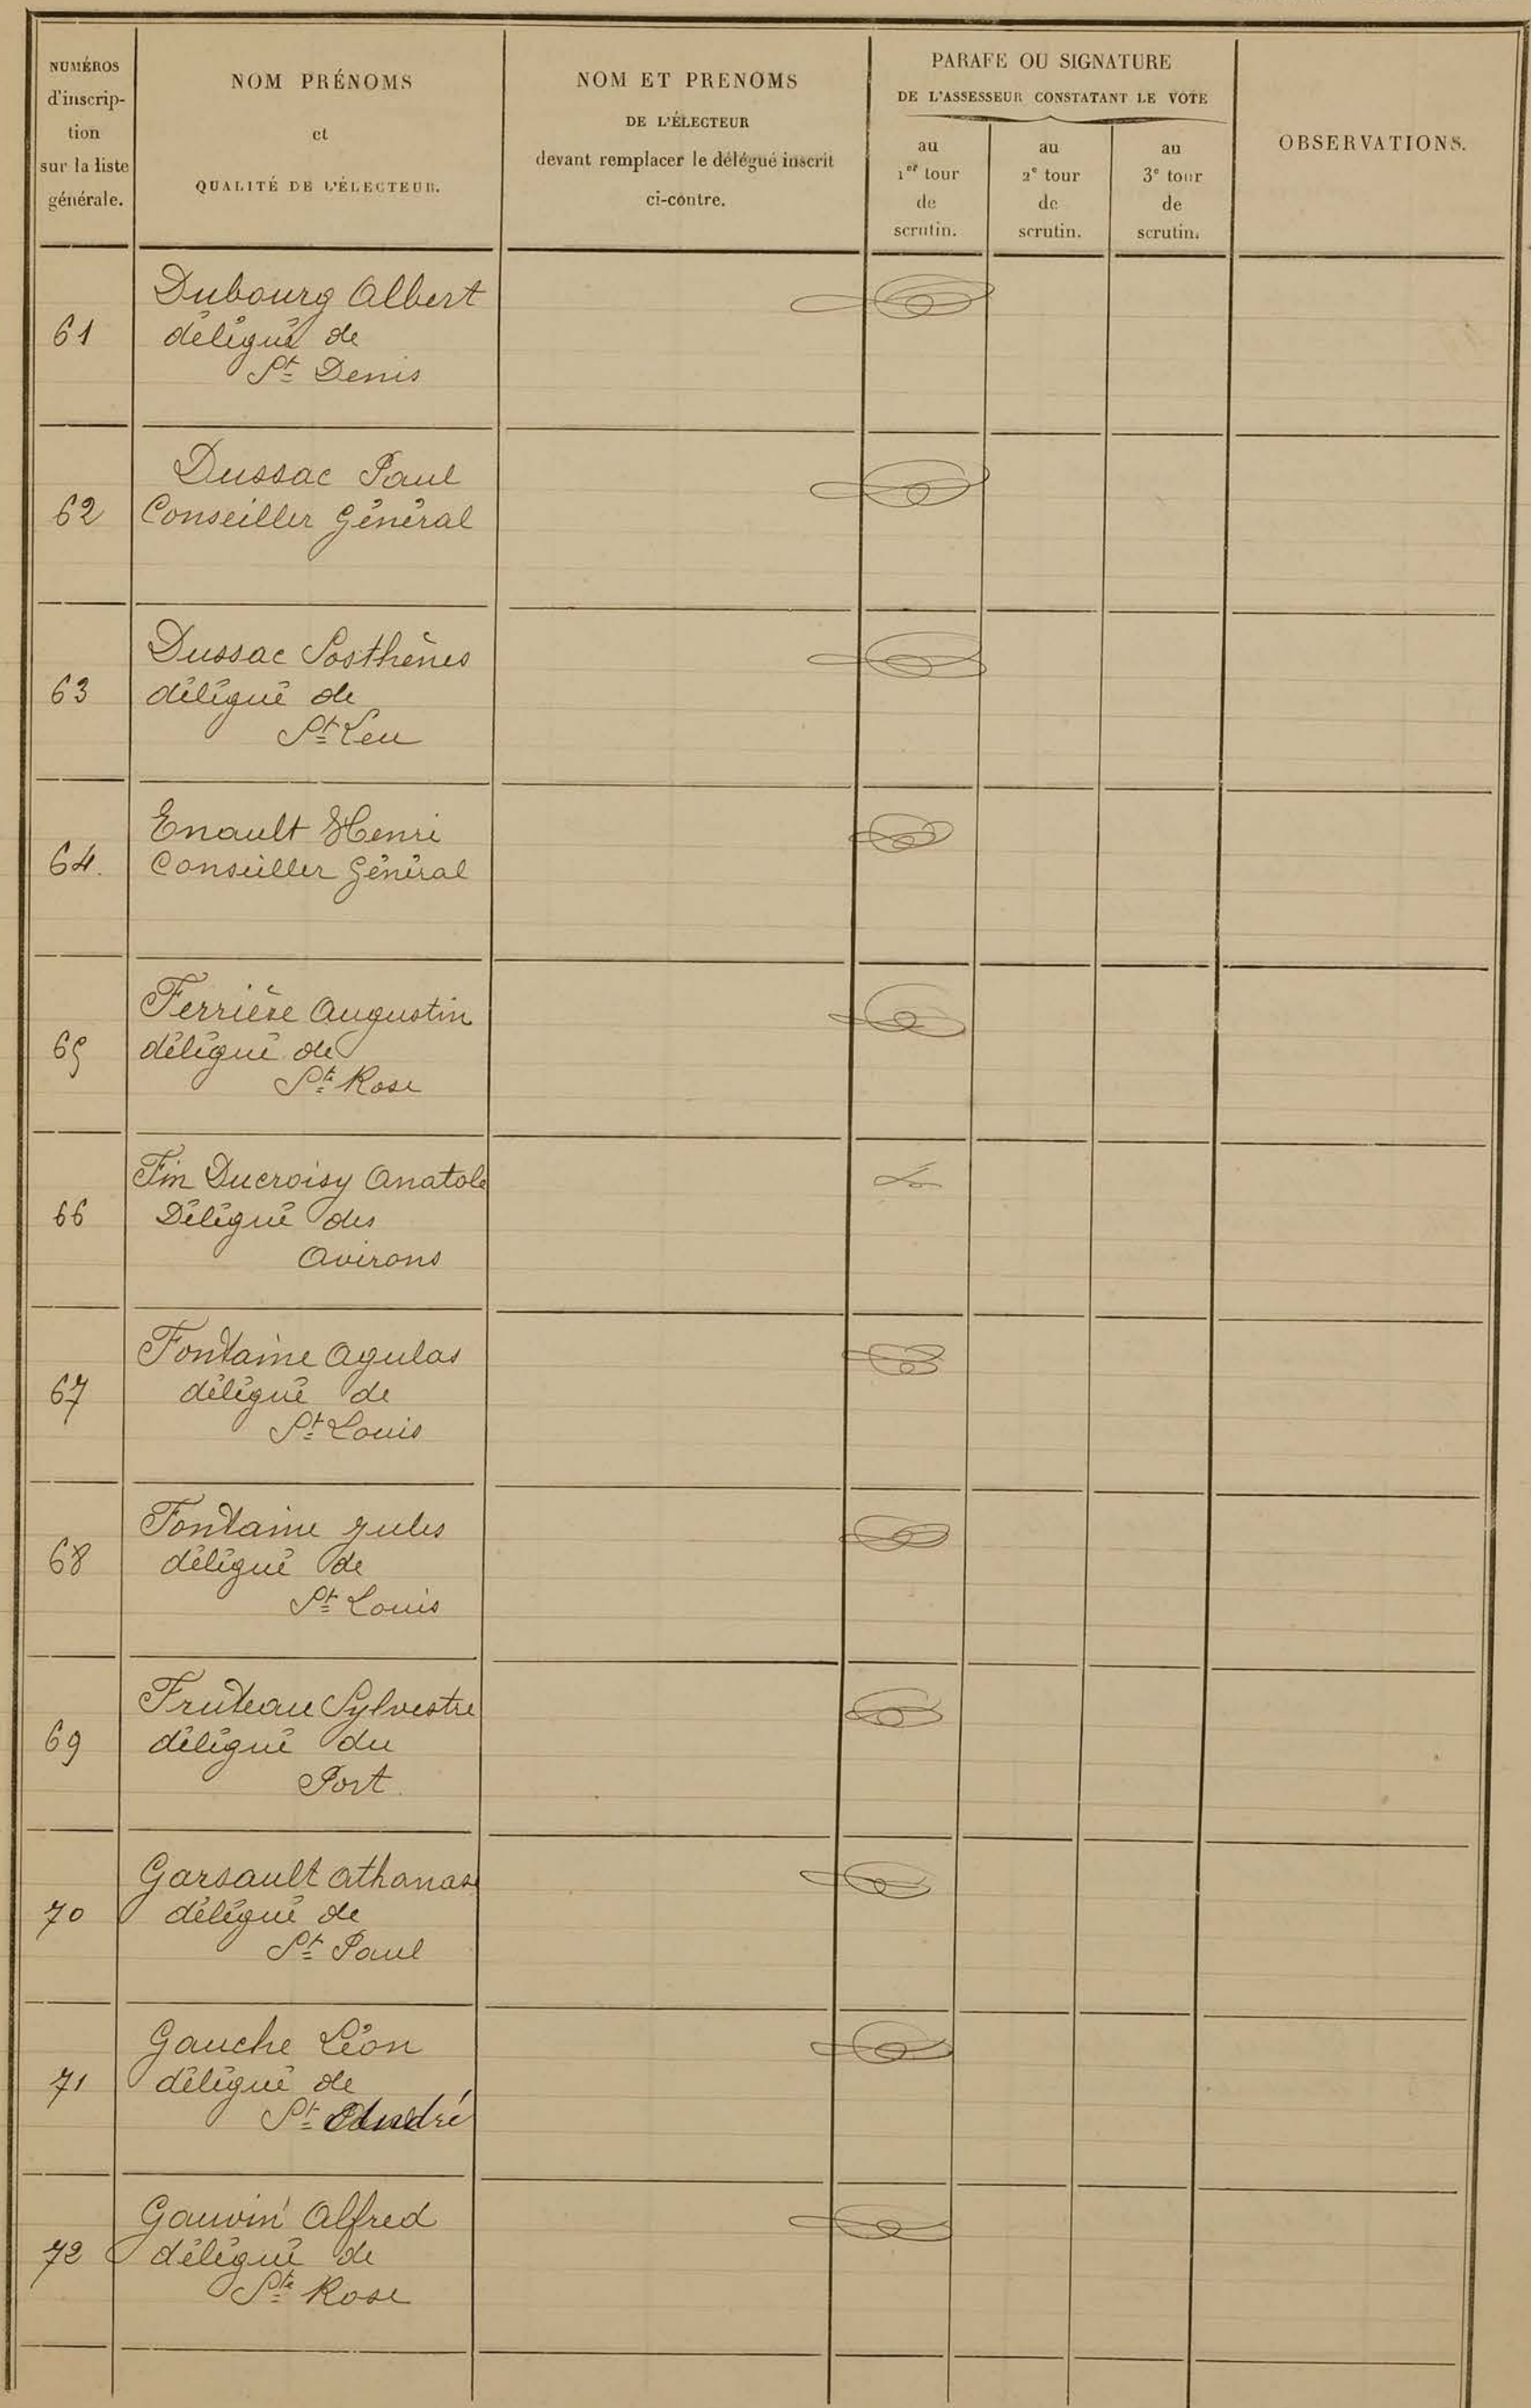 NUMÉROS
d'inscrip-
tion
sur la liste
générale.
NOM PRÉNOMS
et
QUALITÉ DE L'ÉLECTEUR.
NOM ET PRENOMS
DE L'ÉLECTEUR
devant remplacer le délégué inscrit
ci-contre.
PARAFE OU SIGNATURE
DE L'ASSESSEUR CONSTATANT LE VOTE
au
1er tour
de
scrutin.
au
2e tour
de
scrutin.
au
3e tour
de
scrutin.
OBSERVATIONS.
61
Dubourg Albert
délégué de
St Denis
62
Dussac Paul
Conseiller Général
63
Dussac Sosthènes
délégué de
St Leu
64.
Enault Henri
Conseiller Général
65
Ferrière Augustin
délégué de
Ste Rose
66
Fin Ducroisy Anatole
Délégué des
Avirons
67
Fontaine Agulas
délégué de
St Louis
68
Fontaine Jules
délégué de
St Louis
69
Fruteau Sylvestre
délégué du
Port
70
Garsault Athanase
délégué de
St Paul
71
Gauche Léon
délégué de
St André
72
Gauvin Alfred
délégué de
Ste Rose